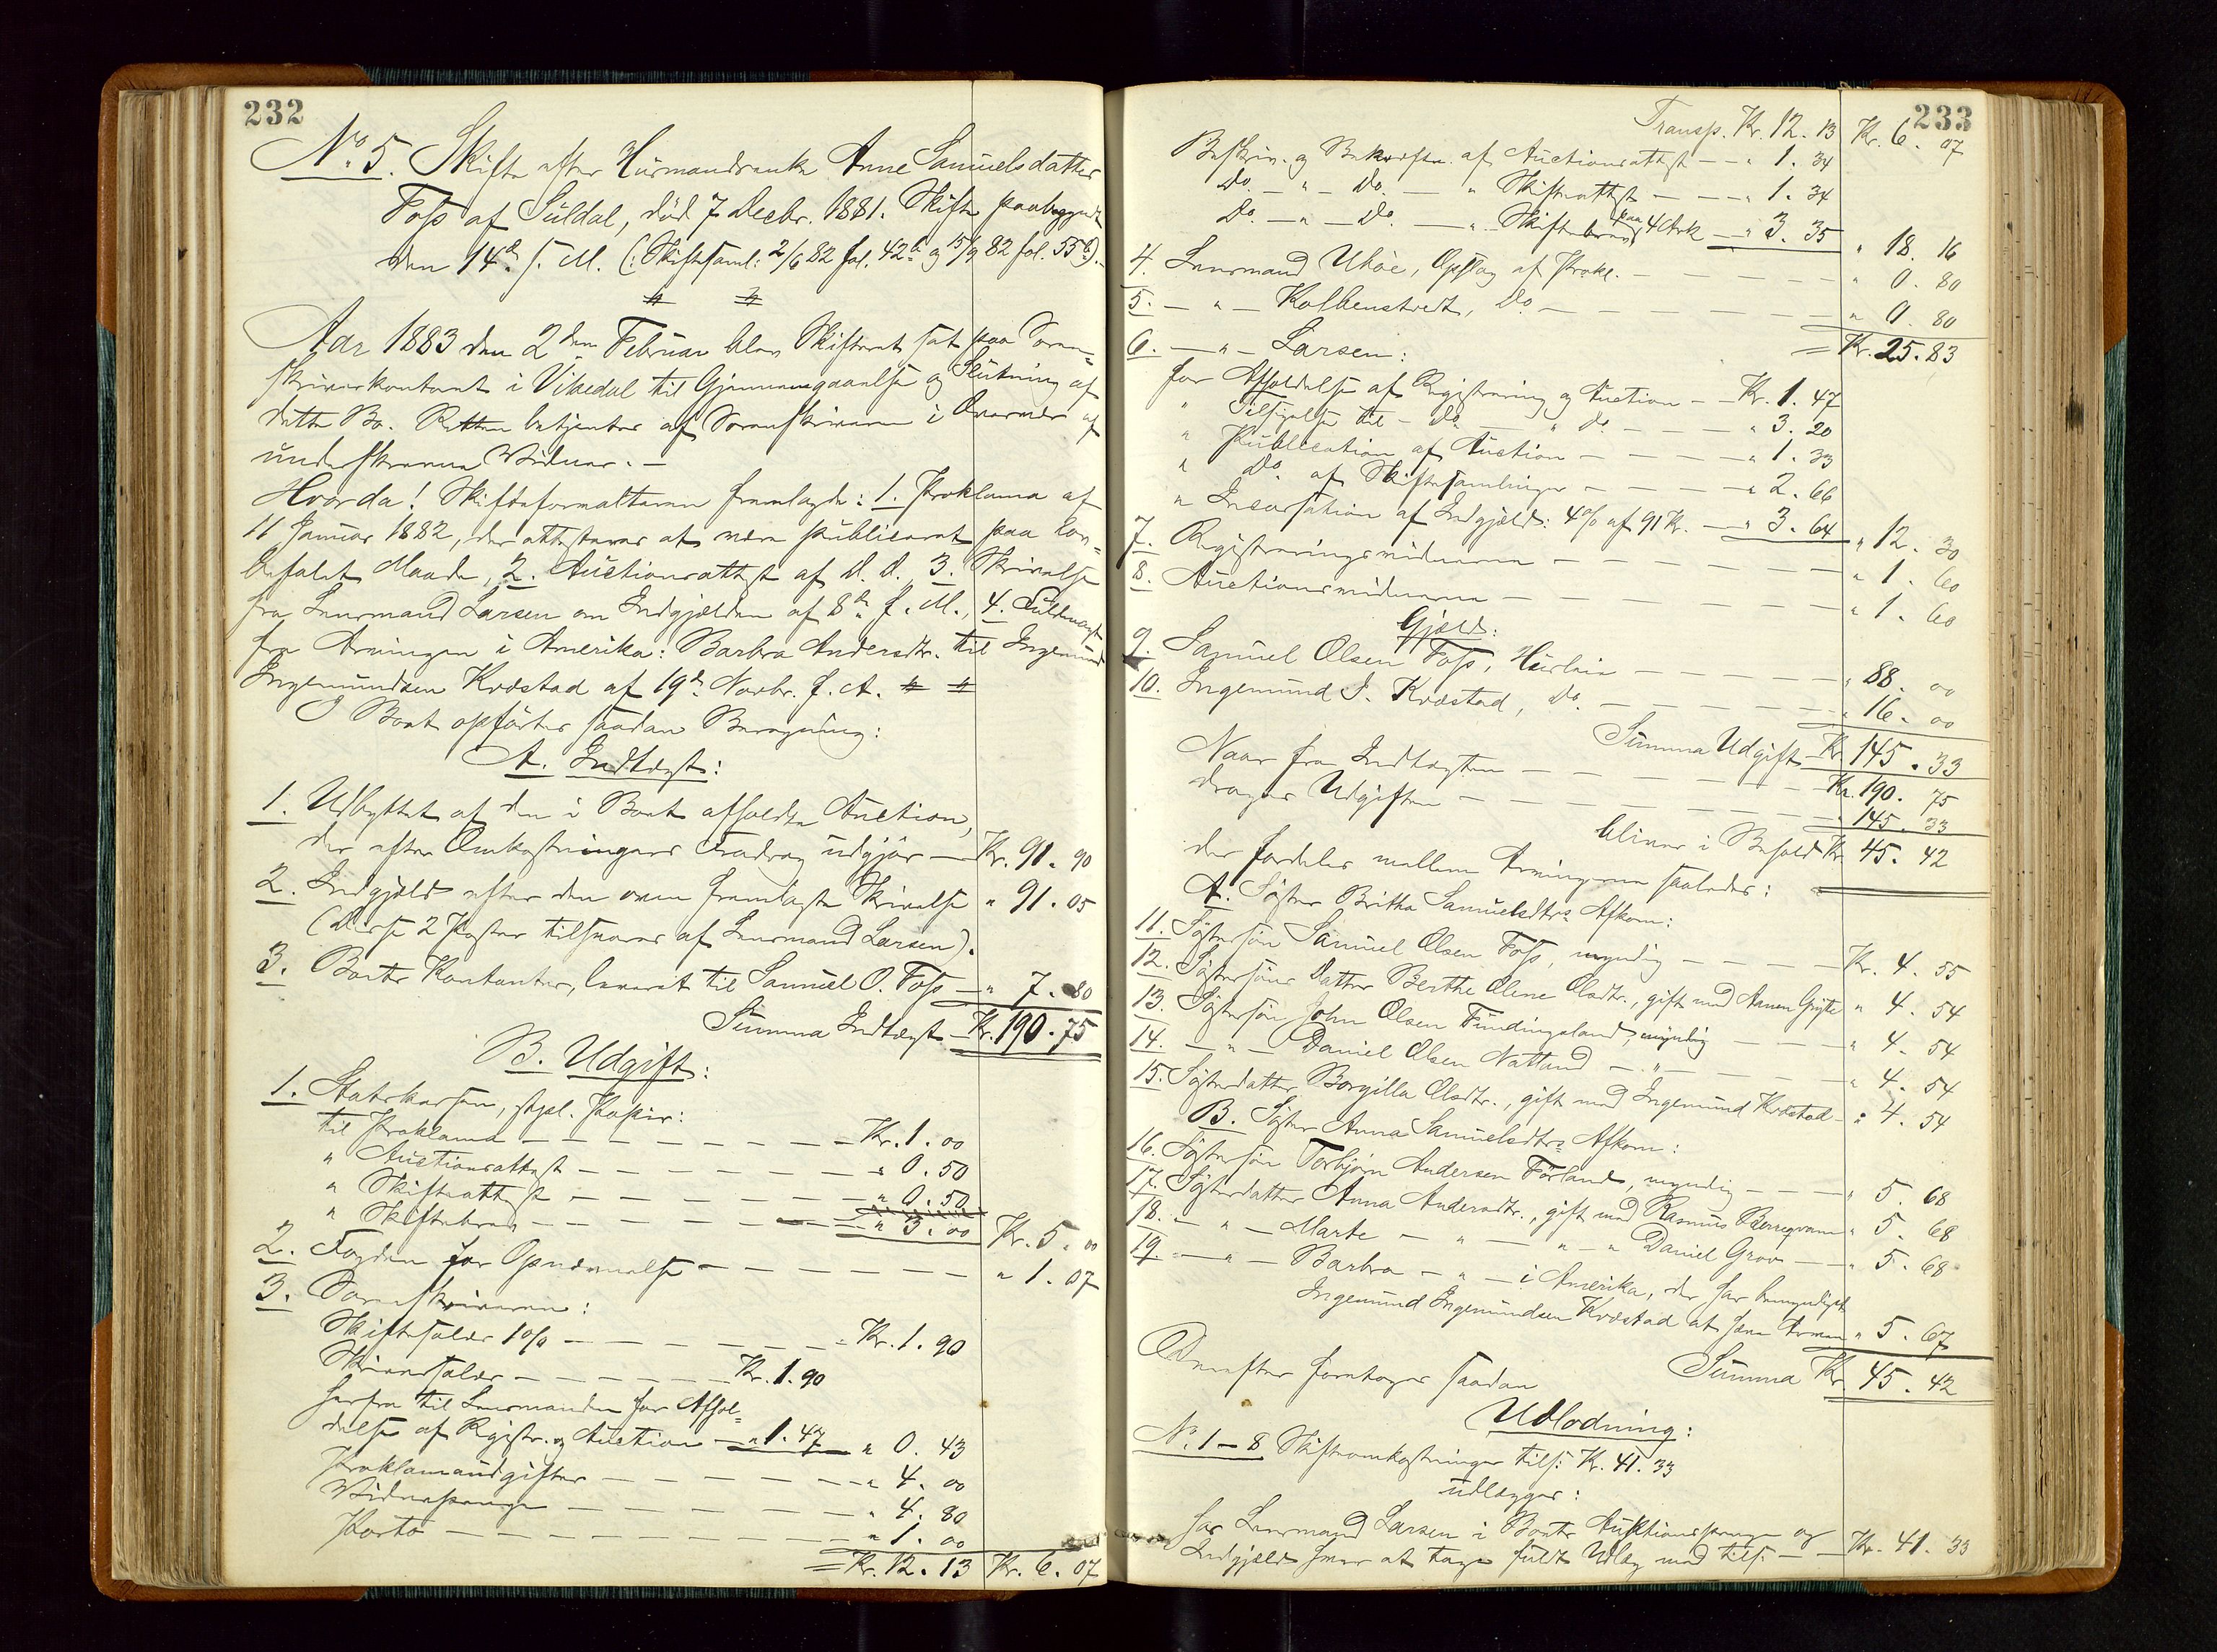 232
No. 5. Skifte efter Huusmandsenke Anne Samuelsdatter
Foss af Suldal, död 7 Decbr. 1881. Skifte paabegyndt
den 14de s. M. (: Skiftesaml: 2/6 82 fol. 42b og 15/9 82 fol. 55b).
Aar 1883 den 2den Februar blev Skifteret sat paa Soren-
skriverkontoret i Vikedal til Gjennemgaaelse og Slutning af
dette Bo. Retten betjentes af Sorenskriveren i Overvær af
underskrevne Vidner. –
Hvorda! Skifteforvalteren fremlagde: 1. Proklama af
11 Januar 1882, der attesteres at være publiceret paa lov-
befalet Maade, 2. Auctionsattest af d. d. 3. Skrivelse
fra Lensmand Larsen om Indgjælden af 8de f. M., 4. Fuldmagt
fra Arvingen i Amerika: Barbra Andersdtr. til Ingemund
Ingemundsen Kvæstad af 19de Novbr. f. A.
I Boet opførtes saadan Beregning:
A. Indtægt:
1. Udbyttet af den i Boet afholdte Auction,
der efter Omkostningers Fradrag udgjör — Kr. 91. 90
2. Indgjæld efter den oven fremlagte Skrivelse " 91. 05
(Disse 2 Poster tilsvares af Lensmand Larsen).
3. Boets Kontanter, leveret til Samuel O. Foss — " 7. 80
Summa Indtægt — Kr. 190. 75
B. Udgift:
1. Statskassen, stpl. Papir:
til Proklama — Kr. 1. 00
" Auctionsattest — " 0. 50
" Skifteattest — " 0. 50
" Skiftebrev — " 3. 00 Kr. 5. 00
2. Fogden for Opnævnelse — " 1. 07
3. Sorenskriveren:
Skiftesalær 1 0/0 — Kr. 1. 90
Skriversalær — Kr. 1. 90
herfra til Lensmanden for Afhol-
delse af Registr. og Auction — " 1. 47 " 0. 43
Proklamaudgifter — " 4. 00
Vidnepenge — " 4. 80
Porto — " 1. 00
= Kr. 12. 13 Kr. 6. 07
233
Transp. Kr. 12. 13 Kr. 6. 07
Beskriv. og Bekræftn. af Auctionsattest — " 1. 34
Do. — " — Do. — " Skifteattest — " 1. 34
Do. — " — Do. — " Skiftebrev paa 4 Ark — " 3. 35 " 18. 16
4. Lensmand Uhöe, Opslag af Prokl. — " 0. 80
5. — " — Kolbenstvedt, Do. — " 0. 80
= Kr. 25. 83
6. — " — Larsen:
for Afholdelse af Registrering og Auction — Kr. 1. 47
" Tilsigelse til — Do. — " do. — " 3. 20
" Publication af Auction — " 1. 33
" Do. af Skiftesamlinger — " 2. 66
" Incassation af Indgjæld: 4% af 91 Kr. — " 3. 64 " 12. 30
7. Registreringsvidnerne — " 1. 60
8. Auctionsvidnerne — " 1. 60
Gjæld:
9. Samuel Olsen Foss, Huusleie — " 88. 00
10. Ingemund I. Kvæstad, Do. — " 16. 00
Summa Udgift Kr. 145. 33
Naar fra Indtægten — Kr. 190. 75
drages Udgiften — " 145. 33
blives i Behold Kr. 45. 42
der fordeles mellem Arvingerne saaledes:
A. Söster Britha Samuelsdtrs Afkom:
11. Söstersön Samuel Olsen Foss, myndig — Kr. 4. 55
12. Söstersöns Datter Berthe Oline Olsdtr., gift med Aanen " 4. 54
13. Söstersön John Olsen Fundingsland, myndig " 4. 54
14. — " — Daniel Olsen Natland — " — " 4. 54
15. Sösterdatter Borgilla Olsdtr., gift med Ingemund Kvæstad — " 4. 54
B. Söster Anna Samuelsdtrs Afkom:
16. Söstersön Torbjörn Andersen Förland, myndig — " 5. 68
17. Sösterdatter Anna Andersdtr., gift med Rasmus " 5. 68
18. — " — Marte — " — " — " Daniel Grov — " 5. 68
19. — " — Barbra — " — i Amerika, der har bemyndiget
Ingemund Ingemundsen Kvæstad at hæve Arven " 5. 67
Summa Kr. 45. 42
Derefter foretoges saadan
Udlodning:
No. 1 – 8 Skifteomkostninger tils: Kr. 41. 33
udlægges:
hos Lensmand Larsen i Boets Auktionspenge og
Indgjæld hvor at tage fuldt Udlæg med tils: — Kr. 41. 33